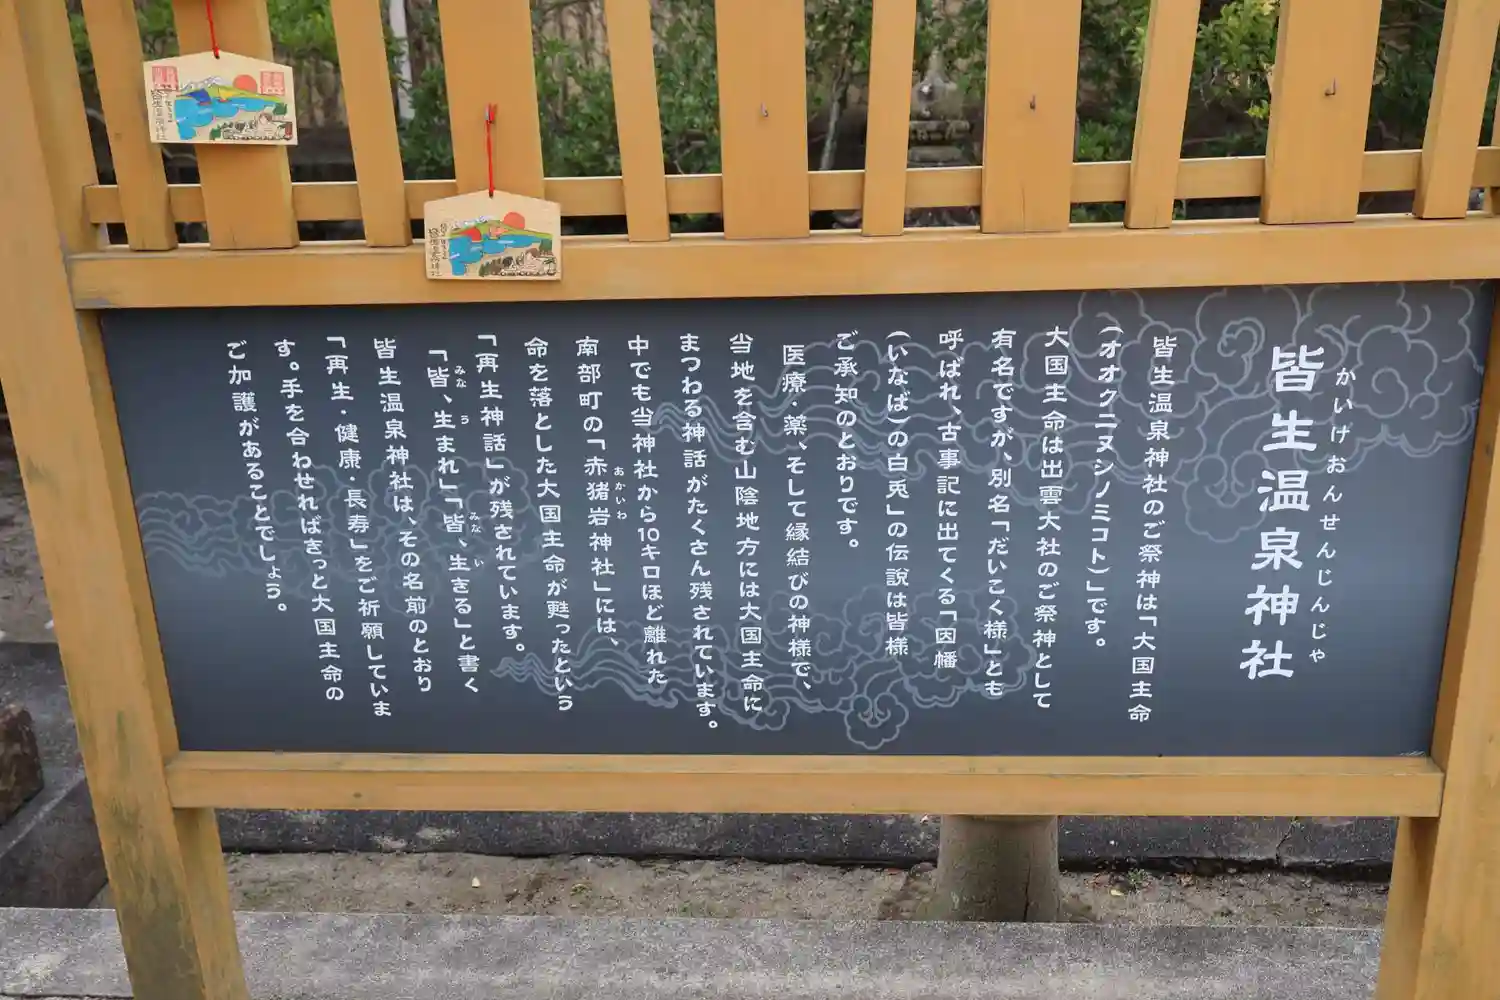 皆生温泉神社
かいけおんせんじんじゃ
皆生温泉神社のご祭神は「大国主命
(オオクニヌシノミコト)」です。
大国主命は出雲大社のご祭神として
有名ですが、別名「だいこく様」とも
呼ばれ、古事記に出てくる「因幡
(いなば)の白兎」の伝説は皆様
ご承知のとおりです。
医療・薬、そして縁結びの神様で、
当地を含む山陰地方には大国主命に
まつわる神話がたくさん残されています。
中でも当神社から10キロほど離れた
南部町の「赤猪岩神社」には、
あかいわ
命を落とした大国主命が甦ったという
「再生神話」が残されています。
「皆、生まれ」「皆、生きる」と書く
みな う みな い
皆生温泉神社は、その名前のとおり
「再生・健康・長寿」をご祈願していま
す。手を合わせればきっと大国主命の
ご加護があることでしょう。